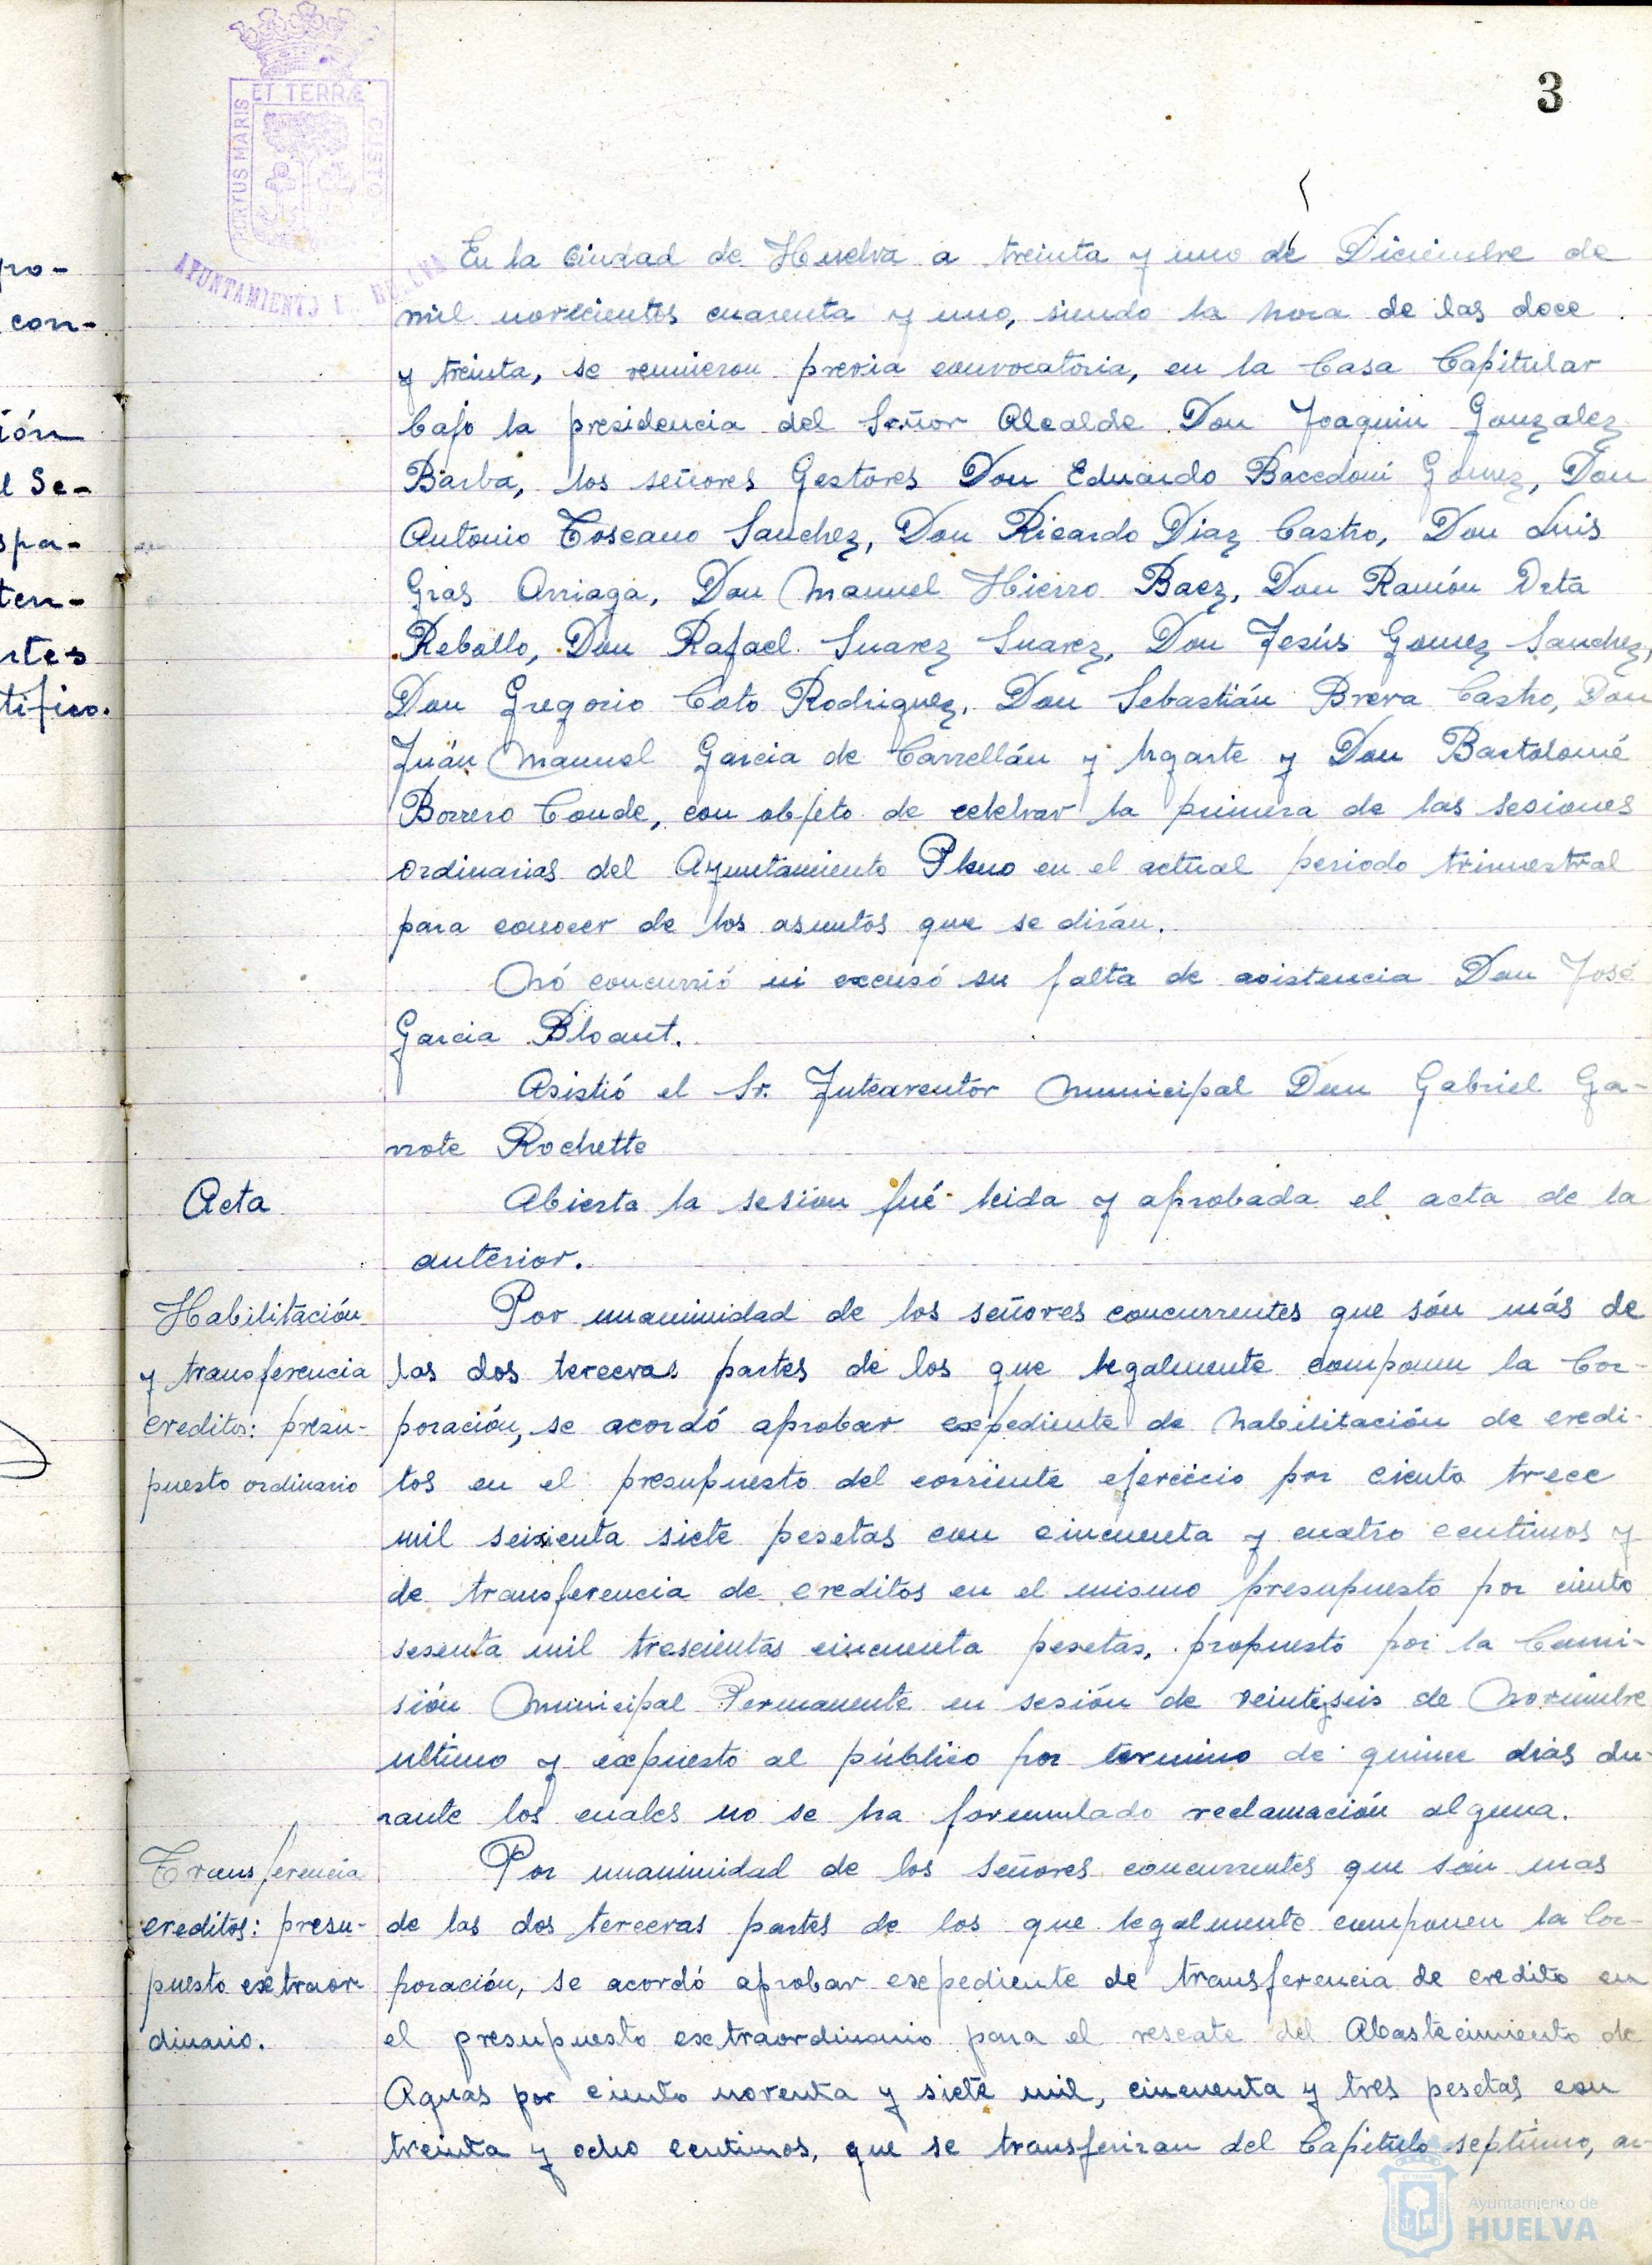 3
PORTUS MARIS ET TERRÆ CUSTO
AYUNTAMIENTO
pro-
con-
ión
l Se-
spa-
ten-
rtes
tifico.
En la Ciudad de Huelva a treinta y uno de Diciembre de
mil novecientos cuarenta y uno, siendo la hora de las doce
y treinta, se reunieron previa convocatoria, en la Casa Capitular
bajo la presidencia del Señor Alcalde Don Joaquin Gonzalez
Barba, los señores Gestores Don Eduardo Bacedoni Gomez, Don
Antonio Toscano Sanchez, Don Ricardo Diaz Castro, Don Luis
Gras Arriaga, Don Manuel Hierro Baez, Don Ramón Orta
Rebollo, Don Rafael Suarez Suarez, Don Jesús Gomez Sanchez,
Don Gregorio Coto Rodriguez, Don Sebastián Breva Castro, Don
Juán Manuel Garcia de Carrellán y Ugarte y Don Bartolomé
Borrero Conde, con objeto de celebrar la primera de las sesiones
ordinarias del Ayuntamiento Pleno en el actual periodo trimestral
para conocer de los asuntos que se dirán.
Nó concurrió ni excusó su falta de asistencia Don José
Garcia Bloant.
Asistió el Sr. Interventor Municipal Don Gabriel Ga-
rrote Rochette
Acta
Abierta la sesión fué leida y aprobada el acta de la
anterior.
Habilitación
y transferencia
creditos: presu-
puesto ordinario
Por unanimidad de los señores concurrentes que són más de
las dos terceras partes de los que legalmente componen la Cor-
poración, se acordó aprobar expediente de habilitación de credi-
tos en el presupuesto del corriente ejercicio por ciento trece
mil seisienta siete pesetas con cincuenta y cuatro centimos y
de transferencia de creditos en el mismo presupuesto por ciento
sesenta mil trescientas cincuenta pesetas, propuesto por la Comi-
sión Municipal Permanente en sesión de veintiseis de Noviembre
ultimo y expuesto al público por termino de quince dias du-
rante los cuales no se ha formulado reclamación alguna.
Transferencia
creditos: presu-
puesto extraor
dinario.
Por unanimidad de los señores concurrentes que són mas
de las dos terceras partes de los que legalmente componen la Cor-
poración, se acordó aprobar expediente de transferencia de credito en
el presupuesto extraordinario para el rescate del Abastecimiento de
Aguas por ciento noventa y siete mil, cincuenta y tres pesetas con
treinta y ocho centimos, que se transferiran del Capitulo septimo, ar-
Ayuntamiento de
HUELVA